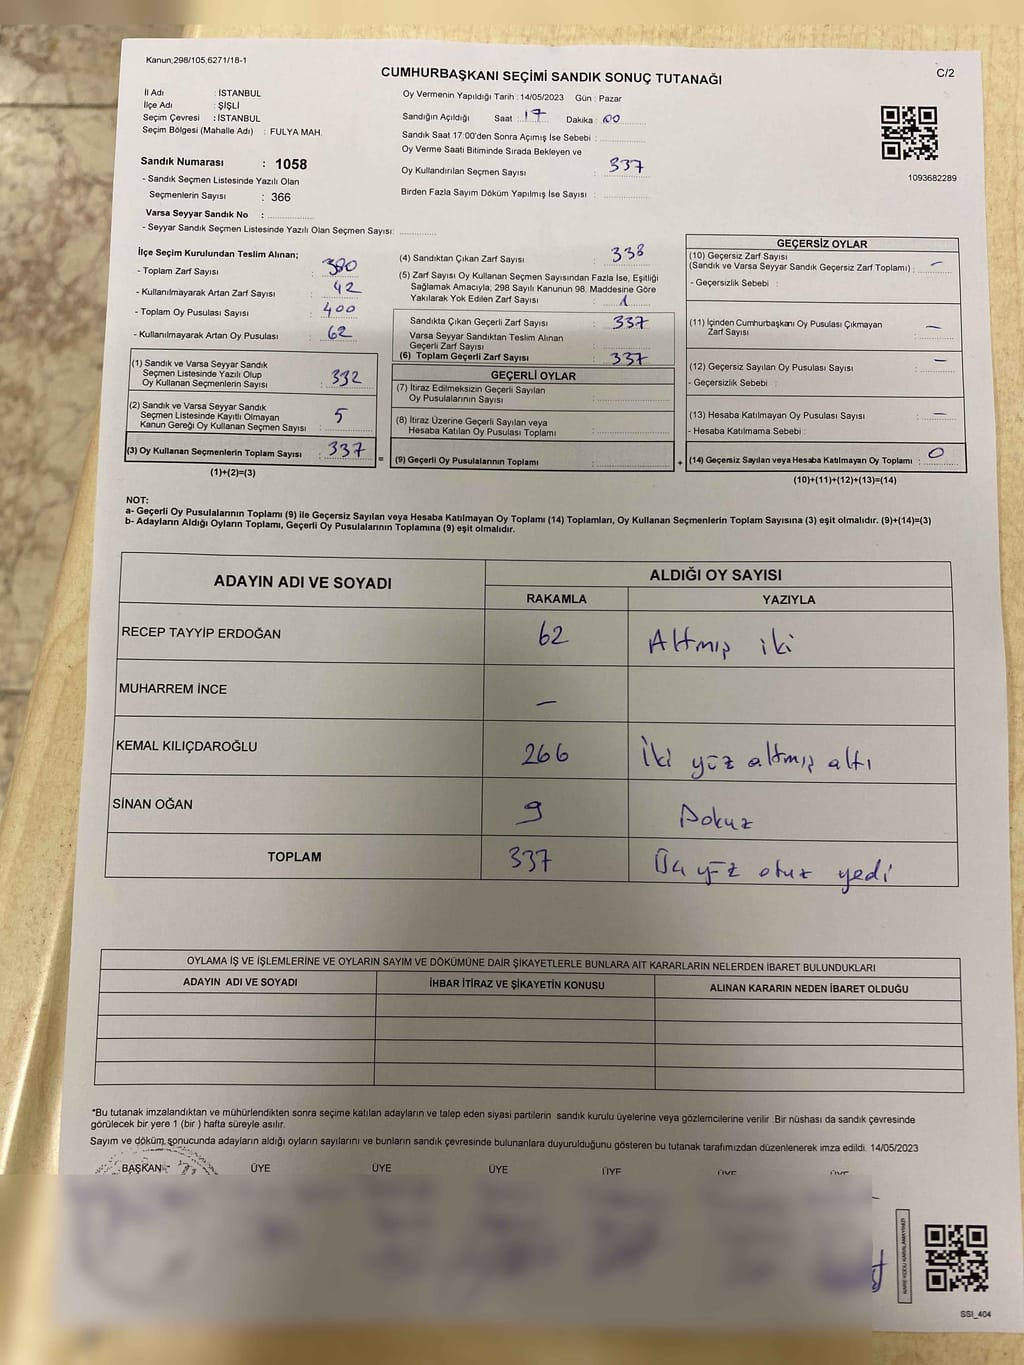 Kanun;298/105;6271/18-1
CUMHURBAŞKANI SEÇİMİ SANDIK SONUÇ TUTANAĞI
C/2
İl Adı : İSTANBUL
İlçe Adı : ŞİŞLİ
Seçim Çevresi : İSTANBUL
Seçim Bölgesi (Mahalle Adı) : FULYA MAH.
Sandık Numarası : 1058
- Sandık Seçmen Listesinde Yazılı Olan
Seçmenlerin Sayısı : 366
Varsa Seyyar Sandık No :
- Seyyar Sandık Seçmen Listesinde Yazılı Olan Seçmen Sayısı:
Oy Vermenin Yapıldığı Tarih : 14/05/2023 Gün : Pazar
Sandığın Açıldığı Saat : 17 Dakika : 00
Sandık Saat 17:00'den Sonra Açımış İse Sebebi :
Oy Verme Saati Bitiminde Sırada Bekleyen ve
Oy Kullandırılan Seçmen Sayısı : 337
Birden Fazla Sayım Döküm Yapılmış İse Sayısı :
1093682289
İlçe Seçim Kurulundan Teslim Alınan;
- Toplam Zarf Sayısı : 380
- Kullanılmayarak Artan Zarf Sayısı : 42
- Toplam Oy Pusulası Sayısı : 400
- Kullanılmayarak Artan Oy Pusulası : 62
(1) Sandık ve Varsa Seyyar Sandık
Seçmen Listesinde Yazılı Olup
Oy Kullanan Seçmenlerin Sayısı : 332
(2) Sandık ve Varsa Seyyar Sandık
Seçmen Listesinde Kayıtlı Olmayan
Kanun Gereği Oy Kullanan Seçmen Sayısı : 5
(3) Oy Kullanan Seçmenlerin Toplam Sayısı : 337
(1)+(2)=(3)
=
(4) Sandıktan Çıkan Zarf Sayısı : 338
(5) Zarf Sayısı Oy Kullanan Seçmen Sayısından Fazla İse, Eşitliği
Sağlamak Amacıyla; 298 Sayılı Kanunun 98. Maddesine Göre
Yakılarak Yok Edilen Zarf Sayısı : 1
Sandıkta Çıkan Geçerli Zarf Sayısı : 337
Varsa Seyyar Sandıktan Teslim Alınan
Geçerli Zarf Sayısı :
(6) Toplam Geçerli Zarf Sayısı : 337
GEÇERLİ OYLAR
(7) İtiraz Edilmeksizin Geçerli Sayılan
Oy Pusulalarının Sayısı :
(8) İtiraz Üzerine Geçerli Sayılan veya
Hesaba Katılan Oy Pusulası Toplamı :
(9) Geçerli Oy Pusulalarının Toplamı :
+
GEÇERSİZ OYLAR
(10) Geçersiz Zarf Sayısı
(Sandık ve Varsa Seyyar Sandık Geçersiz Zarf Toplamı) : —
- Geçersizlik Sebebi :
(11) İçinden Cumhurbaşkanı Oy Pusulası Çıkmayan
Zarf Sayısı : —
(12) Geçersiz Sayılan Oy Pusulası Sayısı : —
- Geçersizlik Sebebi :
(13) Hesaba Katılmayan Oy Pusulası Sayısı : —
- Hesaba Katılmama Sebebi :
(14) Geçersiz Sayılan veya Hesaba Katılmayan Oy Toplamı : 0
(10)+(11)+(12)+(13)=(14)
NOT:
a- Geçerli Oy Pusulalarının Toplamı (9) ile Geçersiz Sayılan veya Hesaba Katılmayan Oy Toplamı (14) Toplamları, Oy Kullanan Seçmenlerin Toplam Sayısına (3) eşit olmalıdır. (9)+(14)=(3)
b- Adayların Aldığı Oyların Toplamı, Geçerli Oy Pusulalarının Toplamına (9) eşit olmalıdır.
ADAYIN ADI VE SOYADI ALDIĞI OY SAYISI
RAKAMLA YAZIYLA
RECEP TAYYİP ERDOĞAN 62 Altmış iki
MUHARREM İNCE —
KEMAL KILIÇDAROĞLU 266 İki yüz altmış altı
SİNAN OĞAN 9 Dokuz
TOPLAM 337 Üç yüz otuz yedi
OYLAMA İŞ VE İŞLEMLERİNE VE OYLARIN SAYIM VE DÖKÜMÜNE DAİR ŞİKAYETLERLE BUNLARA AİT KARARLARIN NELERDEN İBARET BULUNDUKLARI
ADAYIN ADI VE SOYADI İHBAR İTİRAZ VE ŞİKAYETİN KONUSU ALINAN KARARIN NEDEN İBARET OLDUĞU
*Bu tutanak imzalandıktan ve mühürlendikten sonra seçime katılan adayların ve talep eden siyasi partilerin sandık kurulu üyelerine veya gözlemcilerine verilir. Bir nüshası da sandık çevresinde
görülecek bir yere 1 (bir ) hafta süreyle asılır.
Sayım ve döküm sonucunda adayların aldığı oyların sayılarını ve bunların sandık çevresinde bulunanlara duyurulduğunu gösteren bu tutanak tarafımızdan düzenlenerek imza edildi. 14/05/2023
BAŞKAN ÜYE ÜYE ÜYE ÜYE ÜYE ÜYE
KARE KODU KARALAMAYINIZ!
SSI_404